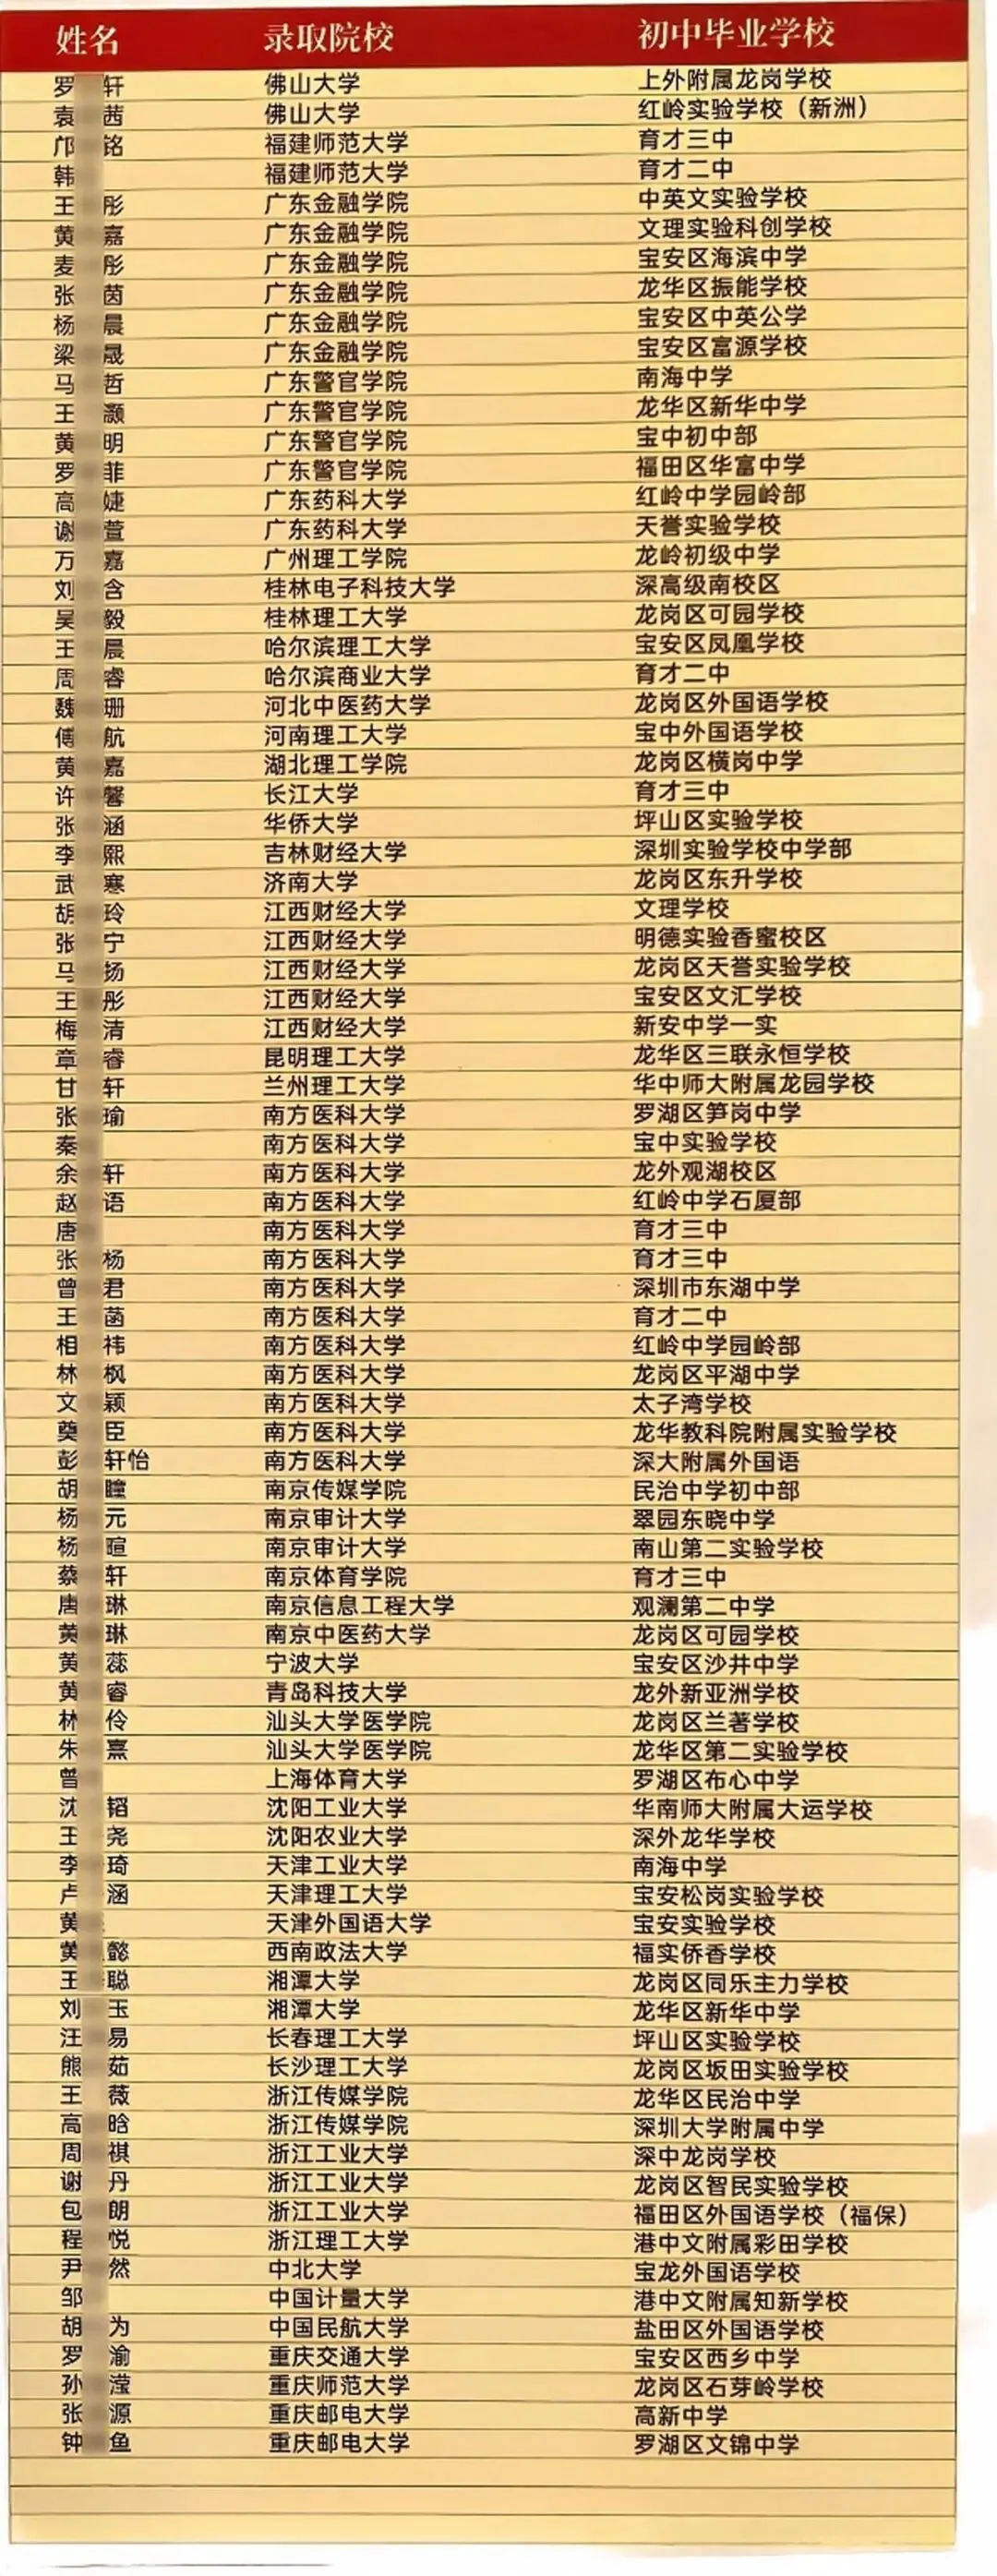 姓名 录取院校 初中毕业学校
罗 轩 佛山大学 上外附属龙岗学校
袁 茜 佛山大学 红岭实验学校（新洲）
邝 铭 福建师范大学 育才三中
韩 福建师范大学 育才二中
王 彤 广东金融学院 中英文实验学校
黄 嘉 广东金融学院 文理实验科创学校
麦 彤 广东金融学院 宝安区海滨中学
张 茵 广东金融学院 龙华区振能学校
杨 晨 广东金融学院 宝安区中英公学
梁 晟 广东金融学院 宝安区富源学校
马 哲 广东警官学院 南海中学
王 灏 广东警官学院 龙华区新华中学
黄 明 广东警官学院 宝中初中部
罗 菲 广东警官学院 福田区华富中学
高 婕 广东药科大学 红岭中学园岭部
谢 萱 广东药科大学 天誉实验学校
万 嘉 广州理工学院 龙岭初级中学
刘 含 桂林电子科技大学 深高级南校区
吴 毅 桂林理工大学 龙岗区可园学校
王 晨 哈尔滨理工大学 宝安区凤凰学校
周 睿 哈尔滨商业大学 育才二中
魏 珊 河北中医药大学 龙岗区外国语学校
傅 航 河南理工大学 宝中外国语学校
黄 嘉 湖北理工学院 龙岗区横岗中学
许 馨 长江大学 育才三中
张 涵 华侨大学 坪山区实验学校
李 熙 吉林财经大学 深圳实验学校中学部
武 寒 济南大学 龙岗区东升学校
胡 玲 江西财经大学 文理学校
张 宁 江西财经大学 明德实验香蜜校区
马 扬 江西财经大学 龙岗区天誉实验学校
王 彤 江西财经大学 宝安区文汇学校
梅 清 江西财经大学 新安中学一实
章 睿 昆明理工大学 龙华区三联永恒学校
甘 轩 兰州理工大学 华中师大附属龙园学校
张 瑜 南方医科大学 罗湖区笋岗中学
秦 南方医科大学 宝中实验学校
余 轩 南方医科大学 龙外观湖校区
赵 语 南方医科大学 红岭中学石厦部
唐 南方医科大学 育才三中
张 杨 南方医科大学 育才三中
曾 君 南方医科大学 深圳市东湖中学
王 菡 南方医科大学 育才二中
相 祎 南方医科大学 红岭中学园岭部
林 枫 南方医科大学 龙岗区平湖中学
文 颖 南方医科大学 太子湾学校
奠 臣 南方医科大学 龙华教科院附属实验学校
彭 轩怡 南方医科大学 深大附属外国语
胡 瞳 南京传媒学院 民治中学初中部
杨 元 南京审计大学 翠园东晓中学
杨 暄 南京审计大学 南山第二实验学校
蔡 轩 南京体育学院 育才三中
唐 琳 南京信息工程大学 观澜第二中学
黄 琳 南京中医药大学 龙岗区可园学校
黄 蕊 宁波大学 宝安区沙井中学
黄 睿 青岛科技大学 龙外新亚洲学校
林 伶 汕头大学医学院 龙岗区兰著学校
朱 熹 汕头大学医学院 龙华区第二实验学校
曾 上海体育大学 罗湖区布心中学
沈 韬 沈阳工业大学 华南师大附属大运学校
王 尧 沈阳农业大学 深外龙华学校
李 琦 天津工业大学 南海中学
卢 涵 天津理工大学 宝安松岗实验学校
黄 天津外国语大学 宝安实验学校
黄 懿 西南政法大学 福实侨香学校
王 聪 湘潭大学 龙岗区同乐主力学校
刘 玉 湘潭大学 龙华区新华中学
汪 易 长春理工大学 坪山区实验学校
熊 茹 长沙理工大学 龙岗区坂田实验学校
王 薇 浙江传媒学院 龙华区民治中学
高 晗 浙江传媒学院 深圳大学附属中学
周 祺 浙江工业大学 深中龙岗学校
谢 丹 浙江工业大学 龙岗区智民实验学校
包 朗 浙江工业大学 福田区外国语学校（福保）
程 悦 浙江理工大学 港中文附属彩田学校
尹 然 中北大学 宝龙外国语学校
邹 中国计量大学 港中文附属知新学校
胡 为 中国民航大学 盐田区外国语学校
罗 渝 重庆交通大学 宝安区西乡中学
孙 滢 重庆师范大学 龙岗区石芽岭学校
张 源 重庆邮电大学 高新中学
钟 鱼 重庆邮电大学 罗湖区文锦中学